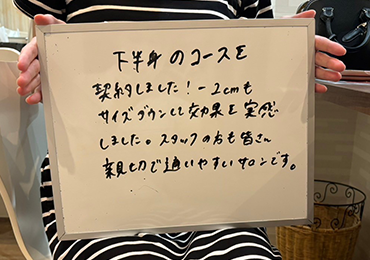 下半身のコースを
契約しました！-2cmも
サイズダウンして効果を実感
しました。スタッフの方も皆さん
親切で通いやすいサロンです。